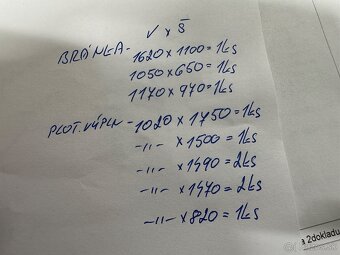 V x Š
BRÁNKA - 1620 x 1100 = 1ks
1050 x 650 = 1ks
1170 x 970 = 1ks
PLOT. VÝPLN - 1020 x 1750 = 1ks
-"- x 1500 = 1ks
-"- x 1490 = 2ks
-"- x 1470 = 2ks
-"- x 820 = 1ks
a 2dokladu